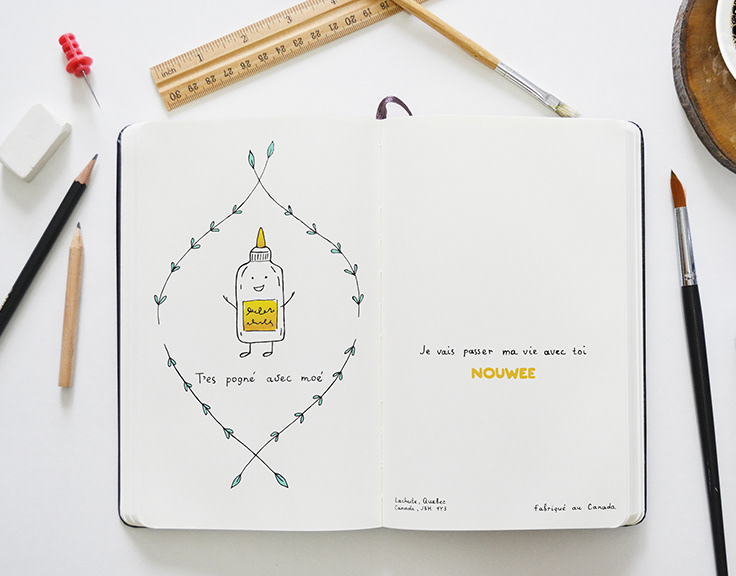 inch 1 2 3
30 29 28 27 26 25 24 23 22 21 20 19 18
Tres pogné avec moé
Je vais passer ma vie avec toi
NOUWEE
Lachute, Quebec
Canada, J8H 4Y3
fabriqué au Canada